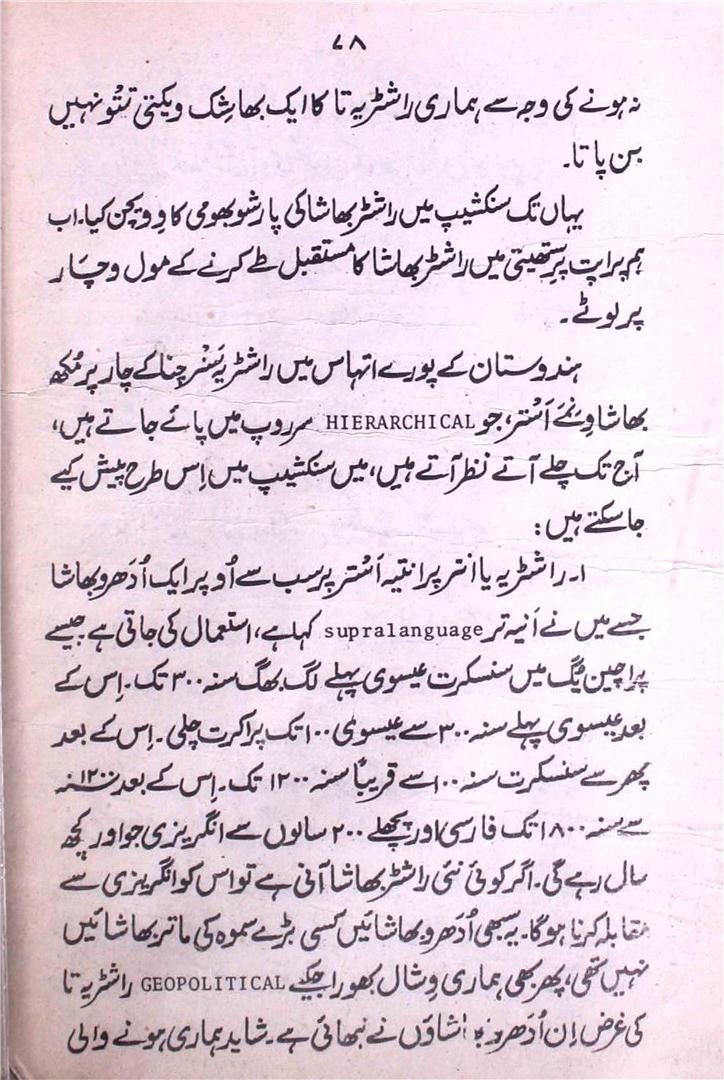 ۷۸
نہ ہونے کی وجہ سے ہماری راشٹریہ تا کا ایک بھاشِک ویکتی تتُو نہیں
بن پاتا۔
یہاں تک سنکشیپ میں راشٹر بھاشا کی پارشو بھومی کا وِویچن کیا۔ اب
ہم پراپت پرِستھیتی میں راشٹر بھاشا کا مستقبل طے کرنے کے مول وچار
پر لوٹے۔
ہندوستان کے پورے اتہاس میں راشٹریہ سَنْرچنا کے چار پرمُکھ
بھاشا وِنَئے اَسْتر، جو HIERARCHICAL روپ میں پائے جاتے ہیں،
آج تک چلے آتے نظر آتے ہیں، میں سنکشیپ میں اِس طرح پیش کیے
جا سکتے ہیں:
۱۔ راشٹریہ یا انتر پرانتیہ اَسْتر پر سب سے اُوپر ایک اُدَھرو بھاشا
جسے میں نے اَنیہ تر supralanguage کہا ہے، استعمال کی جاتی ہے جیسے
پراچین یُگ میں سنسکرت عیسوی پہلے لگ بھگ سنہ ۳۰۰ تک۔ اِس کے
بعد عیسوی پہلے سنہ ۳۰۰ سے عیسوی ۱۰۰ تک پراکرت چلی۔ اِس کے بعد
پھر سے سنسکرت سنہ ۱۰۰ سے قریباً سنہ ۱۲۰۰ تک۔ اِس کے بعد سنہ ۱۲۰۰
سے سنہ ۱۸۰۰ تک فارسی اور پچھلے ۲۰۰ سالوں سے انگریزی جو اور کچھ
سال رہے گی۔ اگر کوئی نئی راشٹر بھاشا آنی ہے تو اس کو انگریزی سے
مقابلہ کرنا ہوگا۔ یہ سبھی اُدَھرو بھاشائیں کسی بڑے سموہ کی ماتر بھاشائیں
نہیں تھی، پھر بھی ہماری وِشال بھوراجکیے GEOPOLITICAL راشٹریہ تا
کی غرض اِن اُدَھرو بھاشاؤں نے نبھائی ہے۔ شاید ہماری ہونے والی